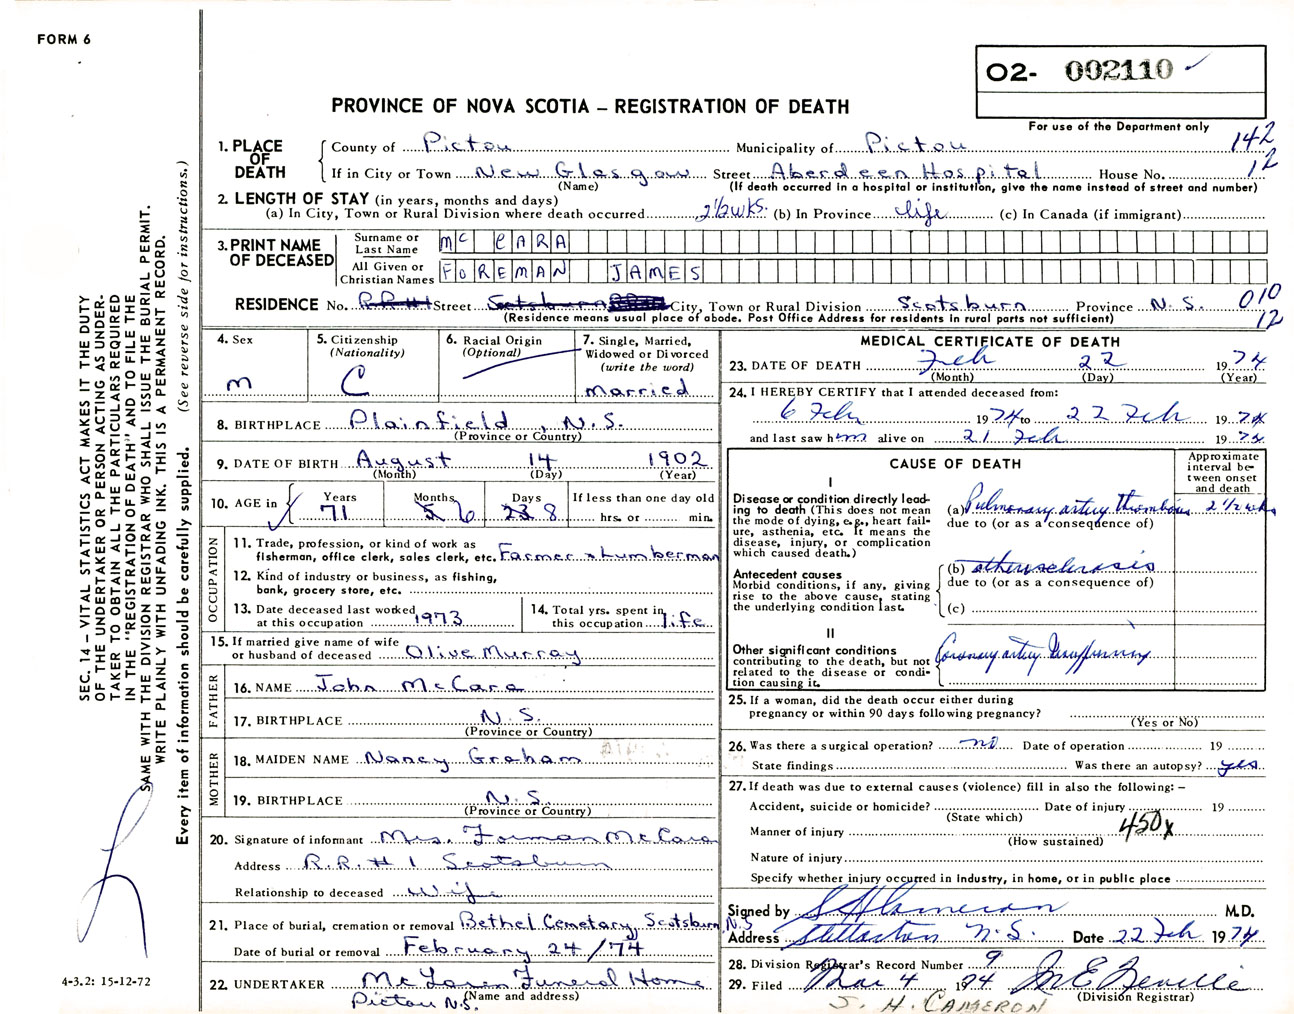 FORM 6
O2- 002110 ✓
PROVINCE OF NOVA SCOTIA – REGISTRATION OF DEATH
For use of the Department only
142
12
1. PLACE OF DEATH
County of Pictou Municipality of Pictou
If in City or Town New Glasgow Street Aberdeen Hospital House No.
(Name) (If death occurred in a hospital or institution, give the name instead of street and number)
2. LENGTH OF STAY (in years, months and days)
(a) In City, Town or Rural Division where death occurred 2½ wks. (b) In Province life (c) In Canada (if immigrant)
3. PRINT NAME OF DECEASED
Surname or Last Name Mc CARA
All Given or Christian Names FOREMAN JAMES
RESIDENCE No. R.R.#1 Street Scotsburn City, Town or Rural Division Scotsburn Province N.S. 010
(Residence means usual place of abode. Post Office Address for residents in rural parts not sufficient) 12
4. Sex
m
5. Citizenship
(Nationality)
C
6. Racial Origin
(Optional)
7. Single, Married,
Widowed or Divorced
(write the word)
married
8. BIRTHPLACE Plainfield, N.S.
(Province or Country)
9. DATE OF BIRTH August 14 1902
(Month) (Day) (Year)
10. AGE in
Years 71
Months 5 6
Days 23 8
If less than one day old
hrs. or min.
OCCUPATION
11. Trade, profession, or kind of work as
fisherman, office clerk, sales clerk, etc. Farmer & Lumberman
12. Kind of industry or business, as fishing,
bank, grocery store, etc.
13. Date deceased last worked
at this occupation 1973
14. Total yrs. spent in
this occupation life
15. If married give name of wife
or husband of deceased Olive Murray
FATHER
16. NAME John McCara
17. BIRTHPLACE N.S.
(Province or Country)
MOTHER
18. MAIDEN NAME Nancy Graham
19. BIRTHPLACE N.S.
(Province or Country)
20. Signature of informant Mrs. Forman McCara
Address R.R.#1 Scotsburn
Relationship to deceased Wife
21. Place of burial, cremation or removal Bethel Cemetary, Scotsburn, N.S
Date of burial or removal February 24/74
22. UNDERTAKER McLaren Funeral Home
(Name and address)
Pictou N.S.
MEDICAL CERTIFICATE OF DEATH
23. DATE OF DEATH Feb 22 1974
(Month) (Day) (Year)
24. I HEREBY CERTIFY that I attended deceased from:
6 Feb 1974 to 22 Feb 1974
and last saw him alive on 21 Feb 1974
CAUSE OF DEATH
Approximate
interval be-
tween onset
and death
I
Disease or condition directly lead-
ing to death (This does not mean
the mode of dying, e.g., heart fail-
ure, asthenia, etc. It means the
disease, injury, or complication
which caused death.)
(a) Pulmonary artery thrombosis 2½ wks
due to (or as a consequence of)
Antecedent causes
Morbid conditions, if any, giving
rise to the above cause, stating
the underlying condition last.
(b) atherosclerosis
due to (or as a consequence of)
(c)
II
Other significant conditions
contributing to the death, but not
related to the disease or condi-
tion causing it.
Coronary artery
25. If a woman, did the death occur either during
pregnancy or within 90 days following pregnancy?
(Yes or No)
26. Was there a surgical operation? no Date of operation 19
State findings Was there an autopsy? yes
27. If death was due to external causes (violence) fill in also the following: –
Accident, suicide or homicide? Date of injury 19
(State which)
Manner of injury 450x
(How sustained)
Nature of injury
Specify whether injury occurred in Industry, in home, or in public place
Signed by S H Cameron M.D.
Address Stellarton N.S. Date 22 Feb 1974
28. Division Registrar's Record Number 9
29. Filed Mar 4 1974 M E Neville
(Division Registrar)
S. H. CAMERON
SEC. 14 – VITAL STATISTICS ACT MAKES IT THE DUTY
OF THE UNDERTAKER OR PERSON ACTING AS UNDER-
TAKER TO OBTAIN ALL THE PARTICULARS REQUIRED
IN THE "REGISTRATION OF DEATH" AND TO FILE THE
SAME WITH THE DIVISION REGISTRAR WHO SHALL ISSUE THE BURIAL PERMIT.
WRITE PLAINLY WITH UNFADING INK. THIS IS A PERMANENT RECORD.
Every item of information should be carefully supplied. (See reverse side for instructions.)
4-3.2: 15-12-72